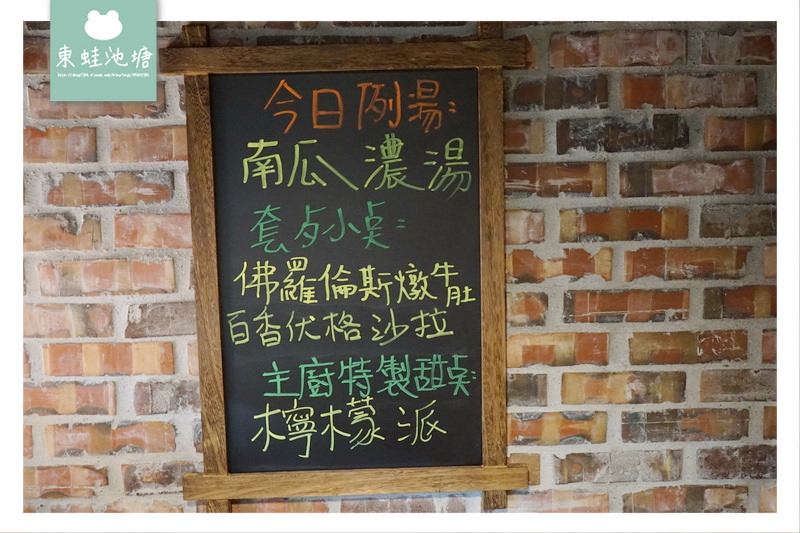 東蛙池塘
今日例湯:
南瓜濃湯
套歺小桌:
佛羅倫斯燉牛肚
百香优格沙拉
主廚特製甜桌:
檸檬派